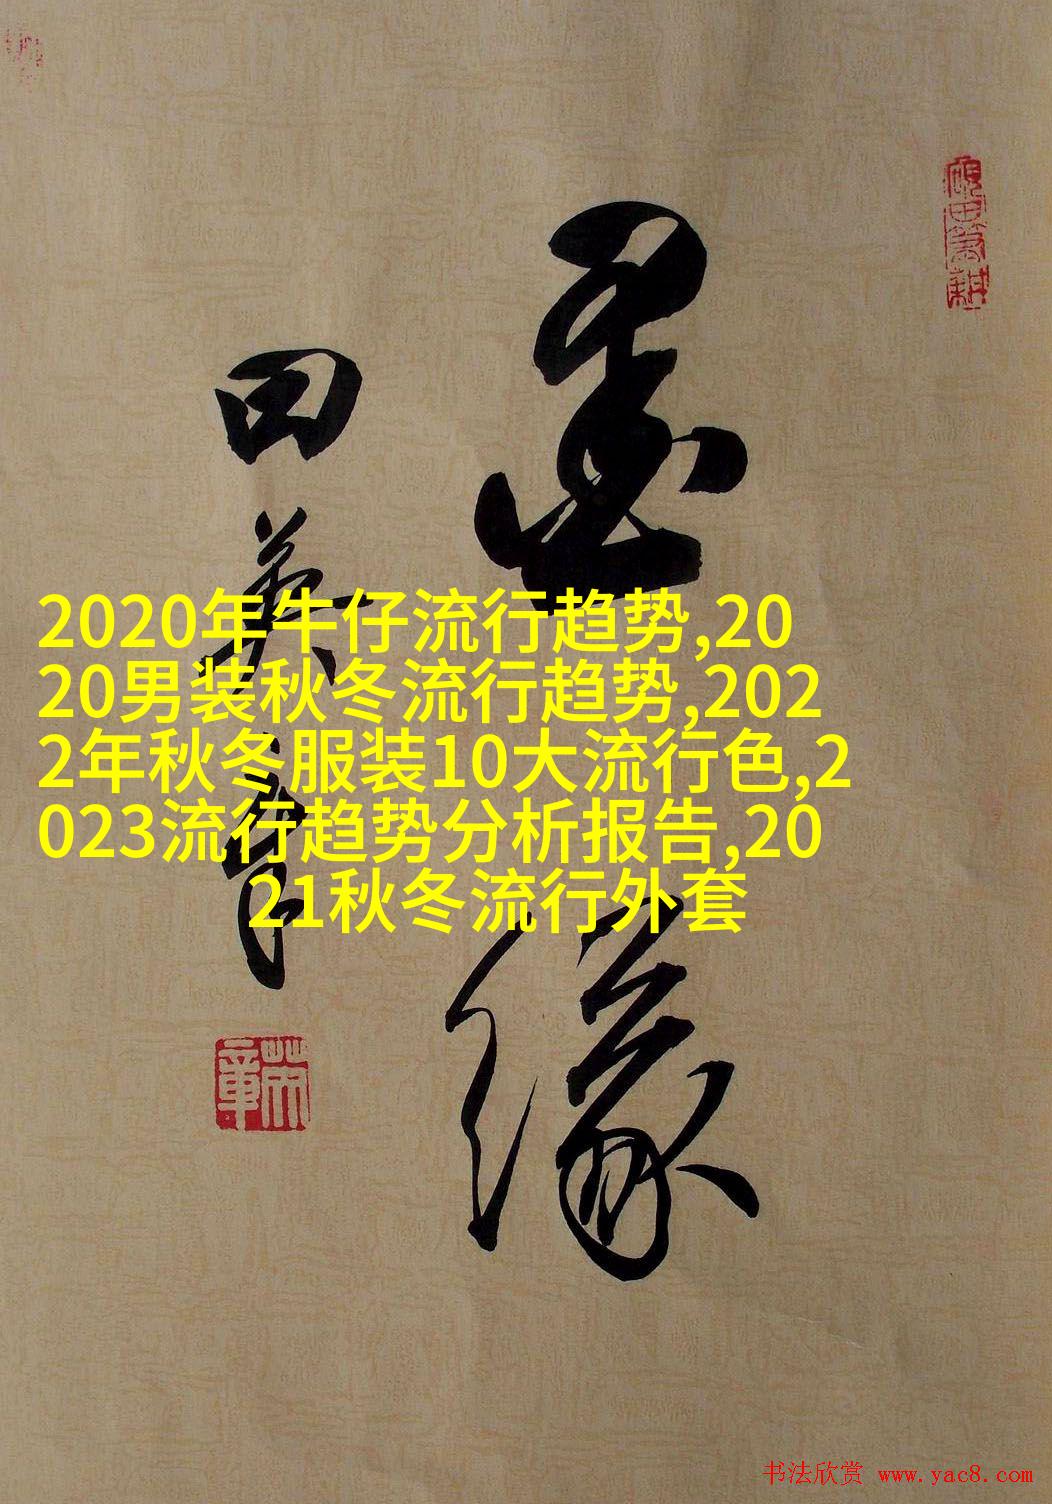 墨缘
田英章
2020年牛仔流行趋势,20
20男装秋冬流行趋势,202
2年秋冬服装10大流行色,2
023流行趋势分析报告,20
21秋冬流行外套
书法欣赏 www.yac8.com